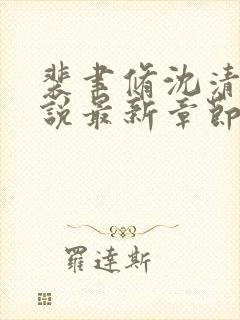 裴聿脩沈清
說最新章節
羅達斯